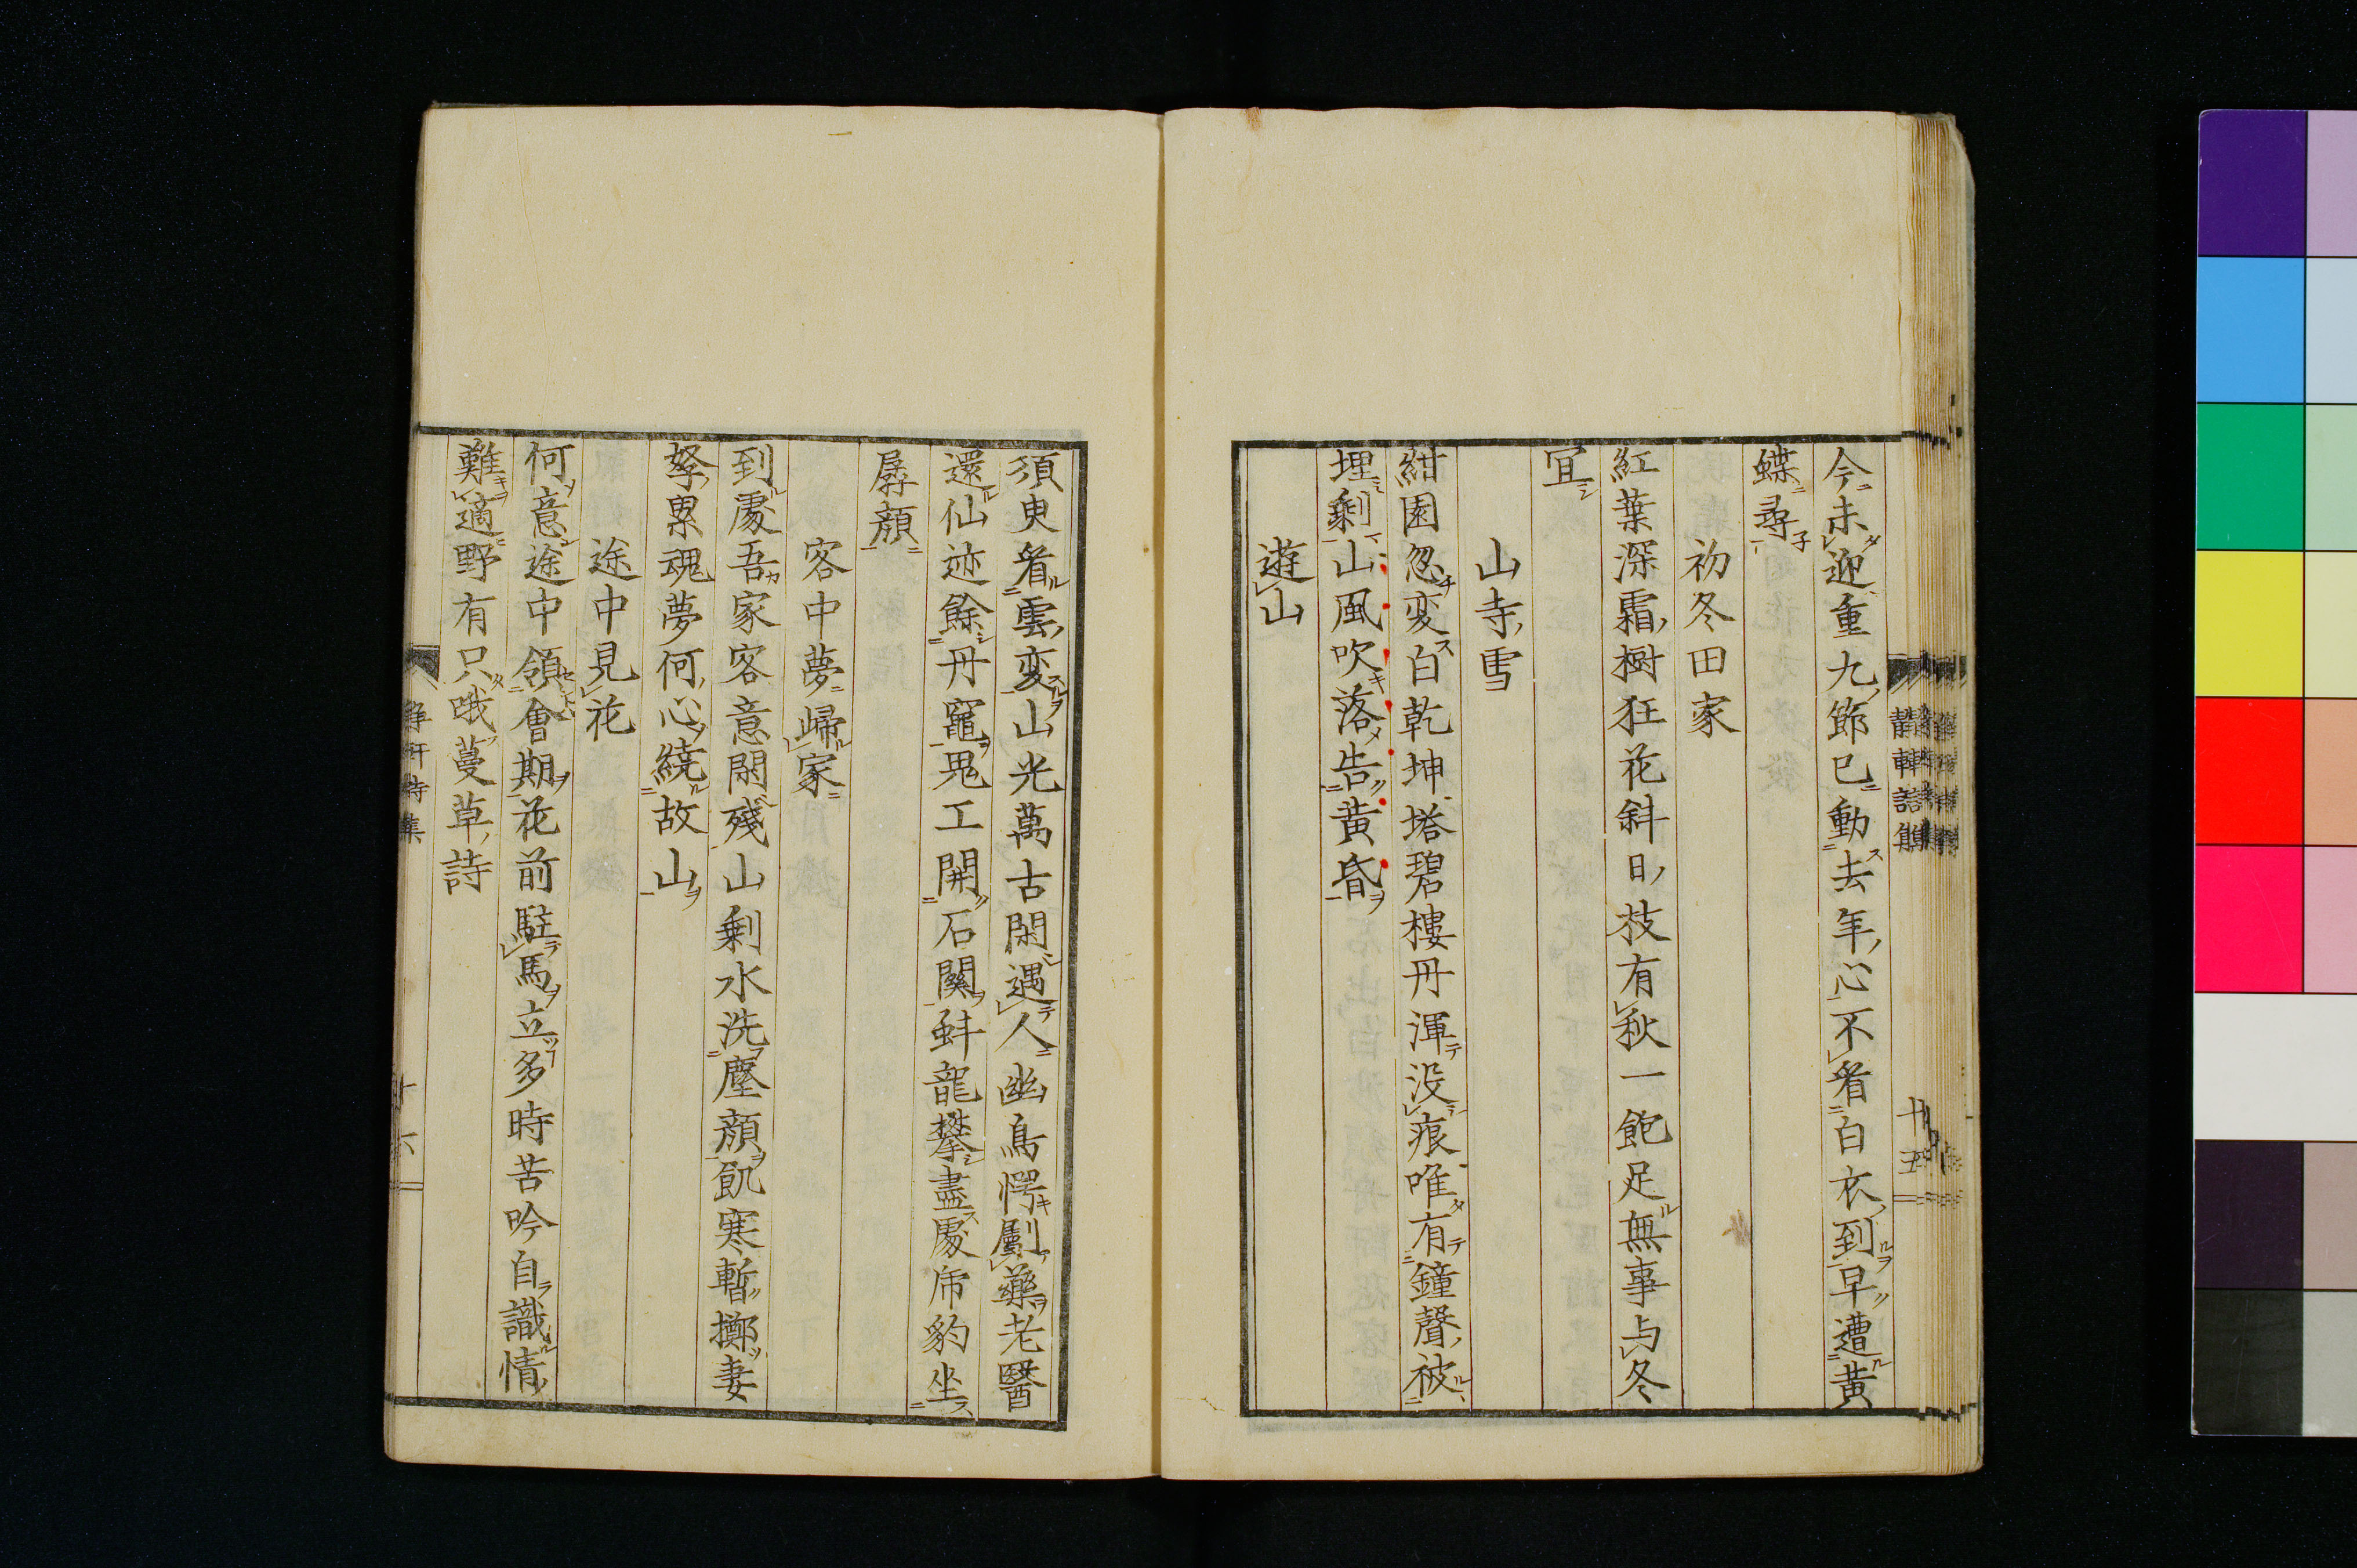 今未迎重九節已動去年心不看白衣到早遭黄
蝶尋
初冬田家
紅葉深霜樹狂花斜日枝有秋一飽足無事与冬
冝
山寺雪
紺園忽変白乾坤塔碧樓丹渾没痕唯有鐘聲被
埋剰山風吹落告黄昏
遊山
須臾看雲変山光萬古閑遇人幽鳥愕劚藥老醫
還仙迹餘丹竈鬼工開石關蚪龍攀盡處乕豹坐
孱顔
客中夢歸家
到處吾家客意閑殘山剰水洗塵顔飢寒暫擲妻
孥累魂夢何心繞故山
途中見花
何意途中領會期花前駐馬立多時苦吟自識情
難適野有只哦蔓草詩
十六